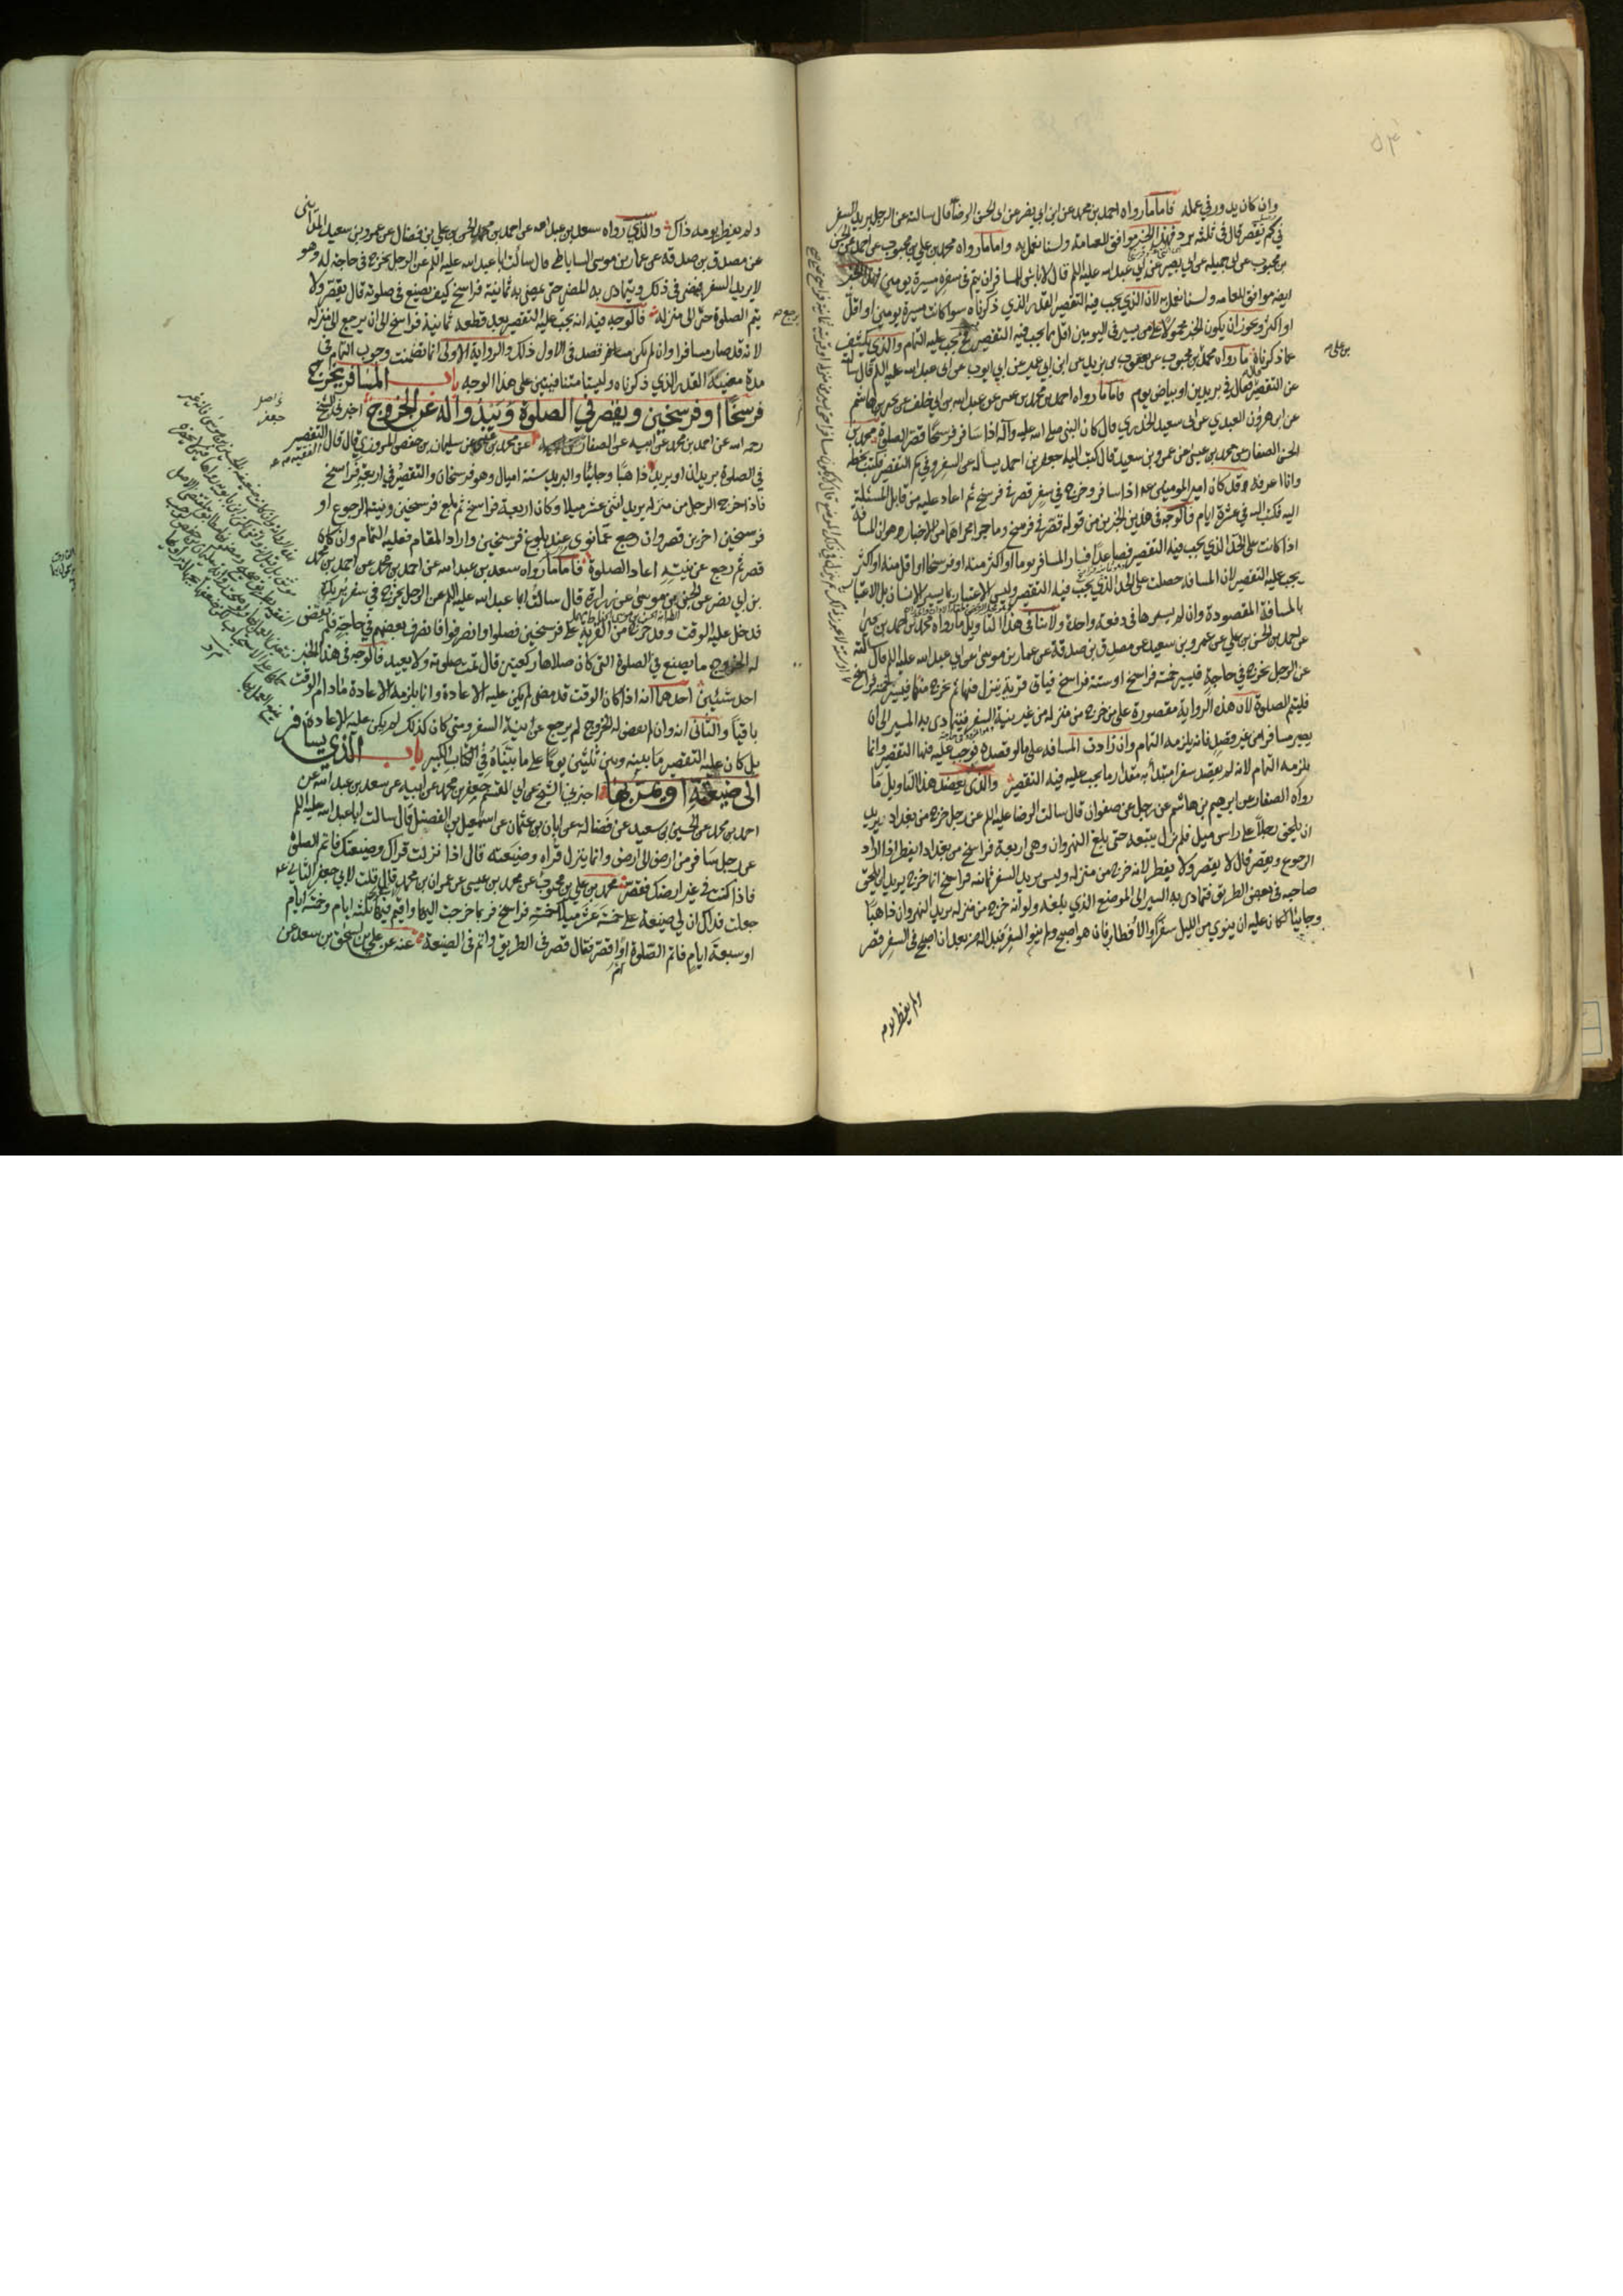 ٥٣
وان كان يدور في عمله فاما ما رواه احمد بن محمد عن ابن ابي نصر عن ابي الحسن الرضا قال سالته عن الرجل يريد السفر
في كم يقصر قال في ثلثة برد فهذا الخبر موافق للعامة ولسنا نعمل به واما ما رواه محمد بن علي بن محبوب عن احمد عن الحسن
بن محبوب عن ابي جميلة عن ابي بصير عن ابي عبد الله عليه السلم قال لا باس للمسافران يتم في سفره مسيرة يومين فهذا الخبر
ايضه موافق للعامه ولسنا نعمل به لان الذي يجب فيه التقصير القدر الذي ذكرناه سواء كانت مسيرة يومين او اقل
او اكثر ويجوز ان يكون الخبر محمولا على من يسير في اليومين اقل مما يجب فيه التقصير فح يجب عليه التمام والذي يكشف
عما ذكرناه ما رواه محمد بن محبوب عن يعقوب بن يزيد عن ابن ابي عمير عن ابي ايوب عن ابي عبد الله عليه السلم قال سالته
بن علي
عن التقصير فقال في بريدين او بياض يوم فاما ما رواه احمد بن محمد بن عيسى عن عبد الله بن ابي خلف عن يحيى بن هاشم
عن ابي هرون العبدي عن ابي سعيد الخدري قال كان النبي صلى الله عليه وآله اذا سافر فرسخا قصر الصلوة محمد بن
الحسن الصفار عن محمد بن عيسى عن عمرو بن سعيد قال كتب اليه جعفر بن احمد يسأله عن السفر وفي كم التقصير فكتب بخطه
وانا اعرفه قد كان امير المومنين عه اذا سافر وخرج في سفر قصر في فرسخ ثم اعاد عليه من قابل المسئلة
اليه فكتب اليه في عشرة ايام فالوجه في هذين الخبرين من قوله قصر في فرسخ وما جرا مجراهما من الاخبار هو ان المسافة
اذا كانت على الحد الذي يجب فيه التقصير فصاعدا فسار المسافر يوما او اكثر منه او فرسخا او اقل منه او اكثر
يجب عليه التقصير لان المسافة حصلت على الحد الذي يجب فيه التقصير وليس الاعتبار بما يسير الانسان بل الاعتبار
بالمسافة المقصودة وان لم يسيرها في دفعة واحدة ولا ينافي هذا التاويل ما رواه محمد بن احمد بن يحيى
عن احمد بن الحسن بن علي عن عمرو بن سعيد عن مصدق بن صدقة عن عمار بن موسى عن ابي عبد الله عليه السلم قال سالته
عن الرجل يخرج في حاجة فيسير خمسة فراسخ او ستة فراسخ فياتي قرية ينزل فيها ثم يخرج منها فيسير خمسة فراسخ
فليتم الصلوة لان هذه الرواية مقصورة على من خرج من منزله من غير نية السفر فيتمادى به المسير الى ان
يصير مسافرا من غير قصد فانه يلزمه التمام وان زادت المسافة على ما لو قصده لوجب عليه فيها التقصير وانما
يلزمه التمام لانه لم يقصد سفرا مبتدأ به مقدار ما يجب عليه فيه التقصير والذي يعضد هذا التاويل ما
رواه الصفار عن ابرهيم بن هاشم عن رجل عن صفوان قال سالت الرضا عليه السلم عن رجل خرج من بغداد يريد
ان يلحق رجلا على راس ميل فلم يزل يتبعه حتى بلغ النهروان وهي اربعة فراسخ من بغداد ايفطر اذا اراد
الرجوع ويقصر قال لا يقصر ولا يفطر لانه خرج من منزله وليس يريد السفر ثمانية فراسخ انما خرج يريد ان يلحق
صاحبه في بعض الطريق فتمادى به السير الى الموضع الذي بلغه ولو انه خرج من منزله يريد النهروان ذاهبا
وجائيا لكان عليه ان ينوي من الليل سفرا والافطار فان هو اصبح ولم ينو السفر فبدا له من بعد ان اصبح في السفر قصر
ولم يفطر يومه
ولم يفطر يومه ذاك والذي رواه سعد بن عبد الله عن احمد بن محمد الحسن بن علي بن فضال عن عمرو بن سعيد المدايني
عن مصدق بن صدقة عن عمار بن موسى الساباطي قال سألت ابا عبد الله عليه السلم عن الرجل يخرج في حاجة له وهو
لا يريد السفر فيمضي في ذلك ويتمادى به المضي حتى يمضي به ثمانية فراسخ كيف يصنع في صلوته قال يقصر ولا
يتم الصلوة حتى الى منزله فالوجه فيه انه يجب عليه التقصير بعد قطعه ثمانية فراسخ الى ان يرجع الى منزله
يرجع
لانه قد صار مسافرا وان لم يكن سافر قصد في الاول ذلك والرواية الاولى انما تضمنت وجوب التمام في
مدة مضيه القدر الذي ذكرناه وليستا متنافيتين على هذا الوجه باب المسافر يخرج
فرسخا او فرسخين ويقصر في الصلوة ويبدو اله عن الخروج اخبرني الشيخ
رحمه الله عن احمد بن محمد عن ابيه عن الصفار عن محمد بن عيسى عن سليمان بن حفص المروزي قال قال الفقيه عه التقصير
في الصلوة بريدان او بريد ذاهبا وجائيا والبريد ستة اميال وهو فرسخان والتقصير في اربعة فراسخ
فاذا خرج الرجل من منزله يريد اثني عشر ميلا وكان اربعة فراسخ ثم بلغ فرسخين ونيته الرجوع او
فرسخين اخرين قصر وان رجع عما نوى عند بلوغ فرسخين واراد المقام فعليه التمام وان كان
قصر ثم رجع عن نيته اعاد الصلوة فاما ما رواه سعد بن عبد الله عن احمد بن محمد عن احمد بن محمد
بن ابي نصر عن الحسن بن موسى عن زرارة قال سالت ابا عبد الله عليه السلم عن الرجل يخرج في سفر يريده
فدخل عليه الوقت وقد خرج من القرية على فرسخين فصلوا وانصرفوا فانصرف بعضهم في حاجة فلم يقض
له الخروج ما يصنع في الصلوة التي كان صلاها ركعتين قال تمت صلوته ولا يعيد فالوجه في هذا الخبر
احد شيئين احدهما انه اذا كان الوقت قد مضى لم يكن عليه الاعادة وانما يلزمه الاعادة مادام الوقت
باقيا والثاني انه وان لم يقض له الخروج لم يرجع عن نية السفر ومتى كان كذلك لم يكن عليه الاعادة
بل كان عليه التقصير ما بينه وبين ثلثين يوما على ما بيناه في الكتاب الكبير باب الذي يسافر
الى ضيعته او يمر بها اخبرني الشيخ عن ابي القسم جعفر بن محمد عن ابيه عن سعد بن عبد الله عن
احمد بن محمد عن الحسين بن سعيد عن فضالة عن ابان بن عثمان عن اسمعيل بن الفضل قال سالت ابا عبد الله عليه السلم
عن رجل سافر من ارض الى ارض وانما ينزل قراه وضيعته قال اذا نزلت قراك وضيعتك فاتم الصلوة
فاذا كنت في غير ارضك فقصر محمد بن علي بن محبوب عن محمد بن عيسى عن عمران بن محمد قال قلت لابي جعفر الثاني عه
جعلت فداك ان لي ضيعة على خمسة عشر ميلا خمسة فراسخ فربما خرجت اليها واقيم فيها ثلثة ايام وخمسة ايام
او سبعة ايام فاتم الصلوة او اقصر فقال قصر في الطريق واتم في الضيعة عنه عن علي بن اسحق بن سعد عن